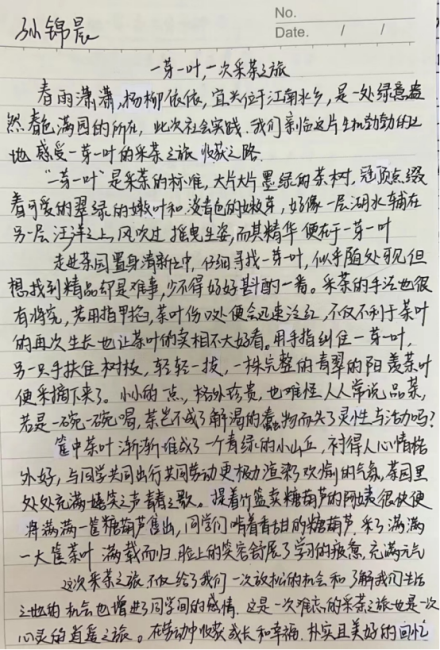 No.
孙锦晨
Date. / /
一芽一叶,一次采茶之旅
春雨潇潇,杨柳依依,宜兴位于江南水乡,是一处绿意盎
然春色满园的所在,此次社会实践,我们亲临这片生机勃勃的土
地感受一芽一叶的采茶之旅 收获之路.
“一芽一叶”是采茶的标准,大片大片墨绿的茶树,冠顶点缀
着可爱的翠绿的嫩叶和浅青色的嫩芽,好像一层湖水铺在
另一层汪洋之上,风吹过 摇曳生姿,而其精华 便在于一芽一叶
走进茶园置身清新之中,仔细寻找一芽一叶,似乎随处可见但
想找到精品却是难事,少不得好好斟酌一番。采茶的手法也很
有讲究,若用指甲掐,茶叶伤口处便会迅速泛红,不仅不利于茶叶
的再次生长也让茶叶的卖相不大好看。用手指纠住一芽一叶,
另一只手扶住树枝,轻轻一拔,一株完整的青翠的阳羡茶叶
便采摘下来了。小小的一点,格外珍贵,也难怪人人常说品茶,
若是一碗一碗喝,茶岂不成了解渴的蠢物而失了灵性与活力吗?
筐中茶叶渐渐堆成了一个青绿的小山丘,衬得人心情格
外好,与同学共同出行共同劳动更极力渲染了欢愉的气氛,茶园里
处处充满嬉笑之声青春之歌。提着竹篮卖糖葫芦的阿姨很快便
将满满一筐糖葫芦售出,同学们啃着香甜的糖葫芦,采了满满
一大筐茶叶 满载而归.脸上的笑容舒展了学习的疲惫,充满元气
这次采茶之旅不仅给了我们一次放松的机会和了解我们生活
之地的机会也增进了同学间的感情.这是一次难忘的采茶之旅也是一次
心灵的逍遥之旅。在劳动中收获成长和幸福,朴实且美好的回忆